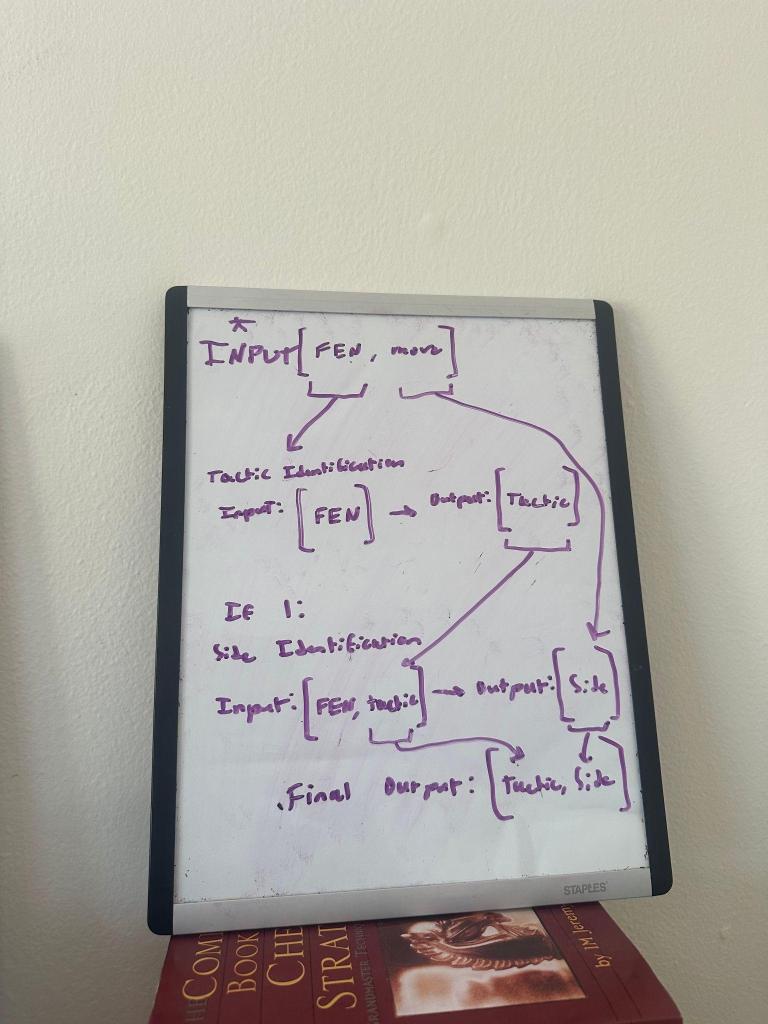 *
INPUT [FEN, move]
Tactic Identification
Input: [FEN] → Output: [Tactic]
If 1:
Side Identification
Input: [FEN, tactic] → Output: [Side]
Final Output: [Tactic, Side]
STAPLES
THE COM
BOOK
CHE
STRAT
GRANDMASTER TECHN
by IM Jeremy